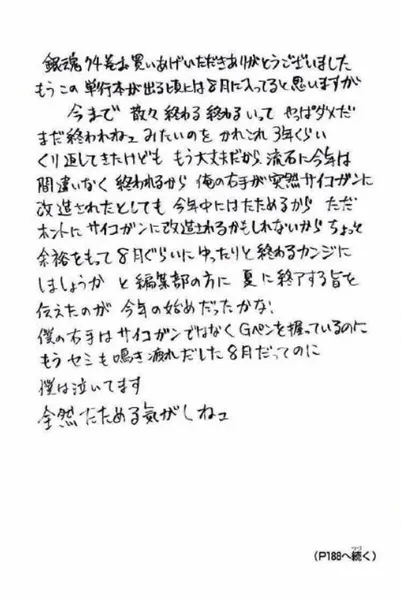 銀魂74巻お買いあげいただきありがとうございました
もうこの単行本が出る頃には8月に入ってると思いますが
今まで散々終わる終わるいってやっぱダメだ
まだ終われねェみたいのをかれこれ3年くらい
くり返してきたけどももう大丈夫だから流石に今年は
間違いなく終われるから俺の右手が突然サイコガンに
改造されたとしても今年中にはたためるからただ
ホントにサイコガンに改造されるかもしれないからちょっと
余裕をもって8月ぐらいにゆったりと終わるカンジに
しましょうかと編集部の方に夏に終了する旨を
伝えたのが今年の始めだったかな
僕の右手はサイコガンではなくGペンを握っているのに
もうセミも鳴き疲れだした8月だってのに
僕は泣いてます
全然たためる気がしねェ
(P188へ続く)